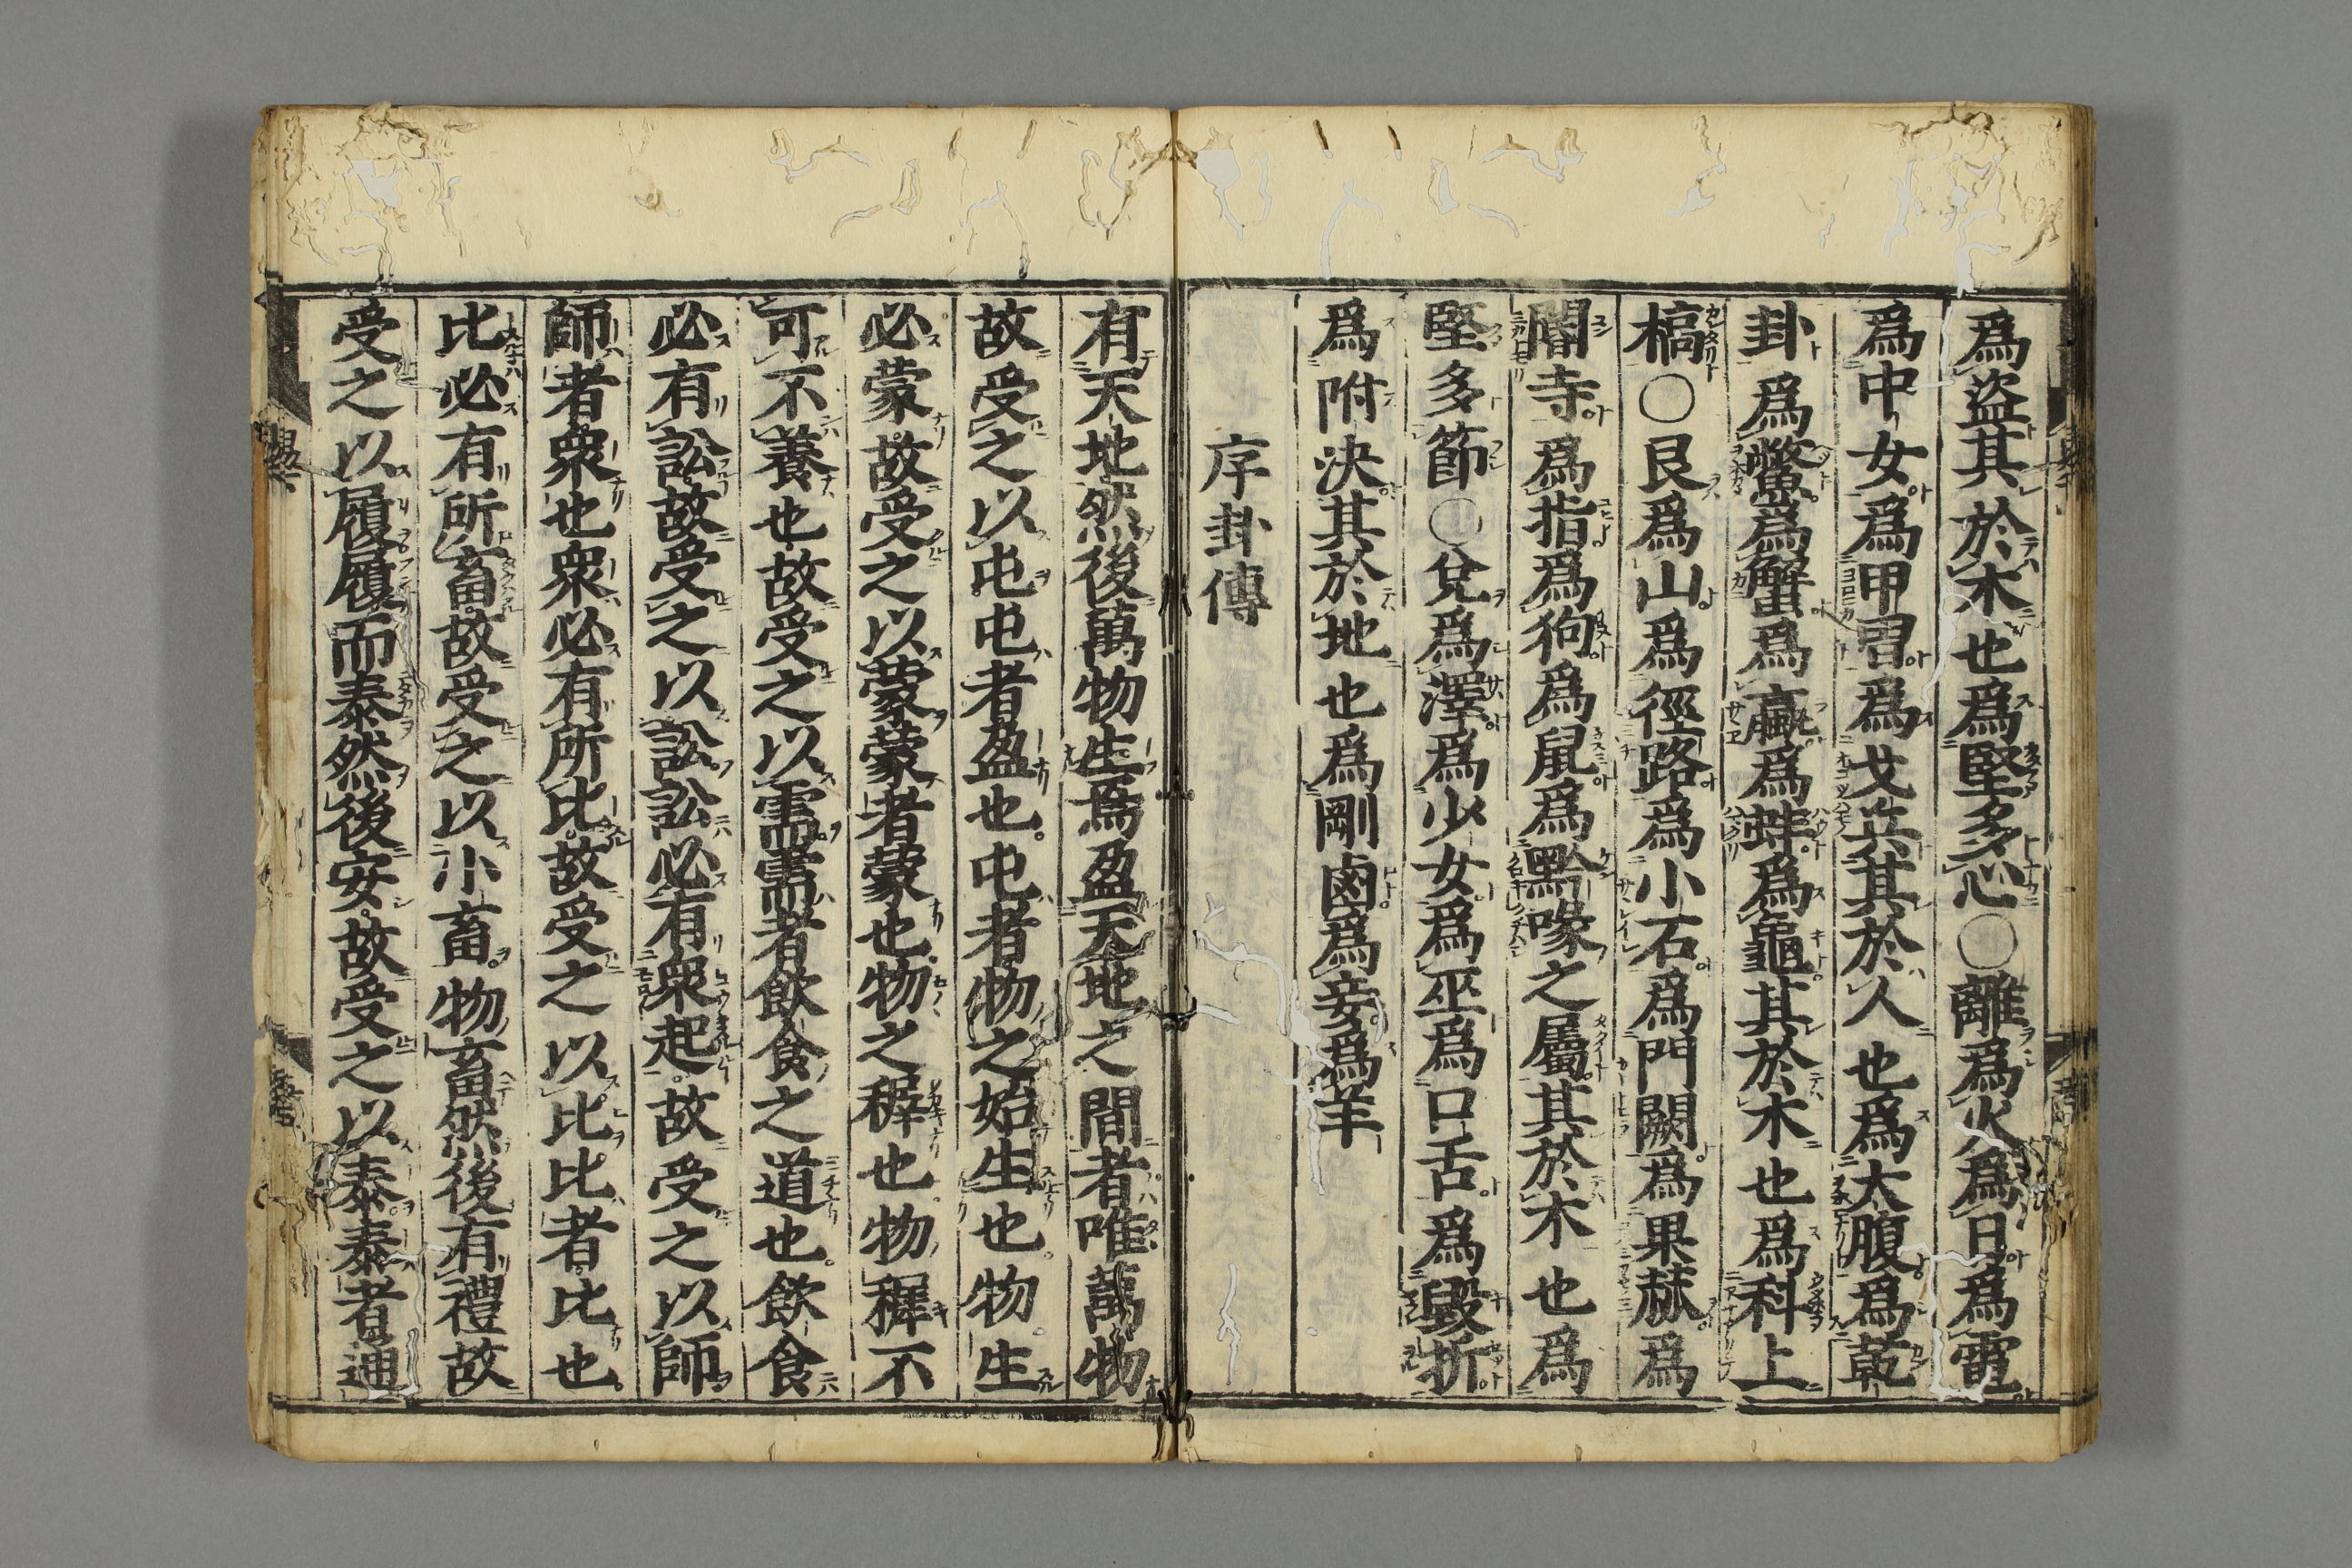 爲盗其於木也爲堅多心○離爲火爲日爲電
爲中女爲甲冑爲戈兵其於人也爲大腹爲乾
卦爲鼈爲蟹爲蠃爲蚌爲龜其於木也爲科上
槁○艮爲山爲徑路爲小石爲門闕爲果蓏爲
閽寺爲指爲狗爲鼠爲黔喙之屬其於木也爲
堅多節○兌爲澤爲少女爲巫爲口舌爲毀折
爲附決其於地也爲剛鹵爲妾爲羊
序卦傳
有天地然後萬物生焉盈天地之間者唯萬物
故受之以屯屯者盈也屯者物之始生也物生
必蒙故受之以蒙蒙者蒙也物之穉也物穉不
可不養也故受之以需需者飲食之道也飲食
必有訟故受之以訟訟必有衆起故受之以師
師者衆也衆必有所比故受之以比比者比也
比必有所畜故受之以小畜物畜然後有禮故
受之以履履而泰然後安故受之以泰泰者通